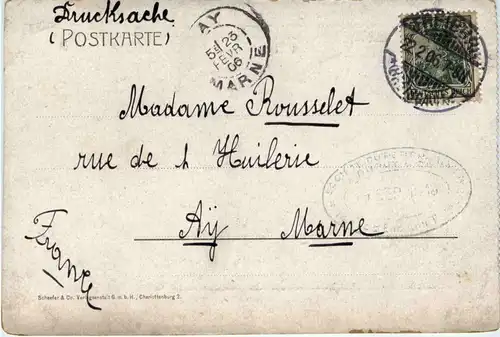 Drucksache
(POSTKARTE)
AY
23
FEVR
06
MARNE
Madame Rousselet
rue de l Huilerie
Aÿ Marne
France
Schaefer & Co. Verlagsanstalt G.m.b.H., Charlottenburg 2.